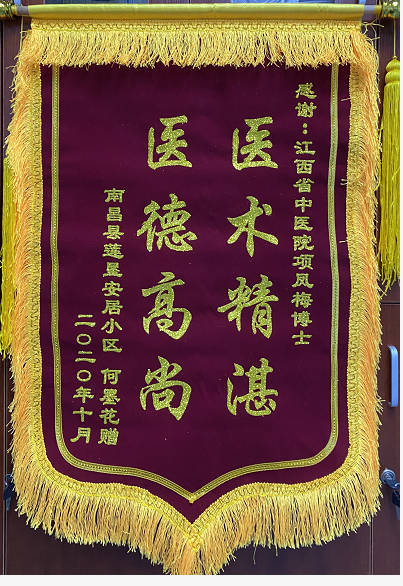 感谢：江西省中医院项凤梅博士
医术精湛
医德高尚
南昌县莲星安居小区 何墨花赠
二〇二〇年十月